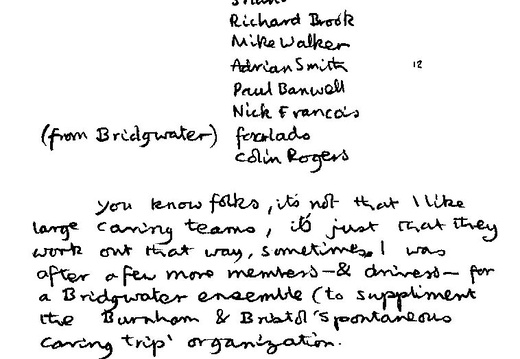 Richard Brook
Mike Walker
Adrian Smith 12
Paul Banwell
Nick Francois
(from Bridgwater) four lads
Colin Rogers
You know folks, it's not that I like
large caving teams, it's just that they
work out that way, sometimes. I was
after a few more members - & drivers - for
a Bridgwater ensemble (to suppliment
the Burnham & Bristol 'spontaneous
caving trip' organization.